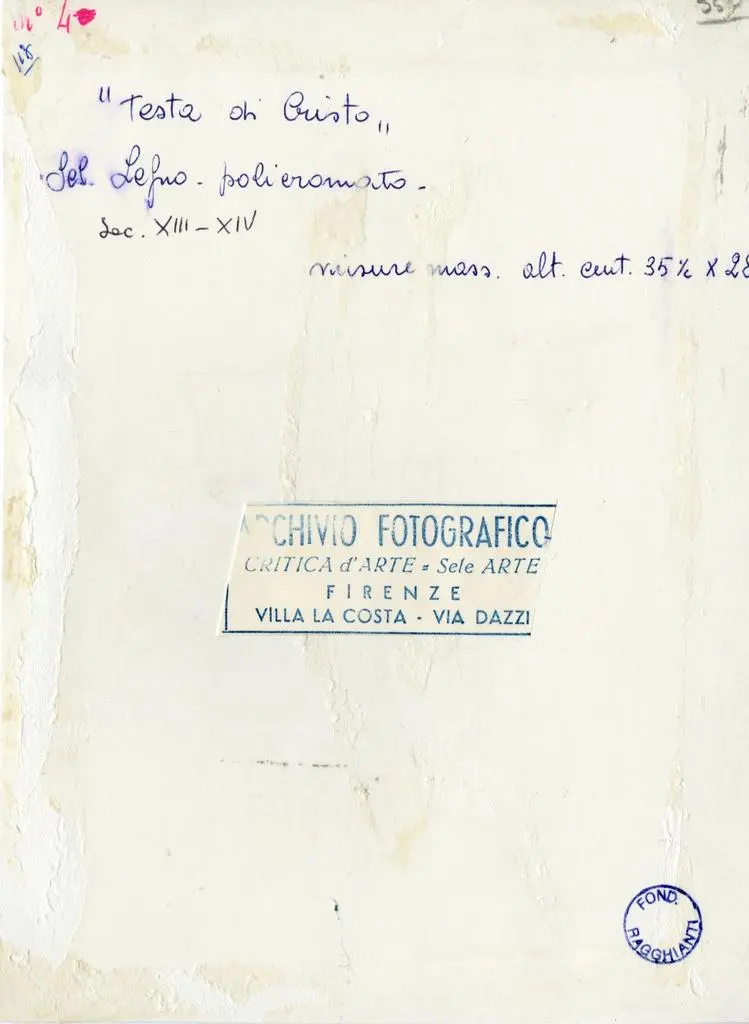 n° 4
118
"Testa di Cristo"
Sel. Legno - policromato -
Sec. XIII - XIV
misure mass. alt. cent. 35½ X 28
ARCHIVIO FOTOGRAFICO
CRITICA d'ARTE = Sele ARTE
FIRENZE
VILLA LA COSTA - VIA DAZZI
FOND. RAGGHIANTI